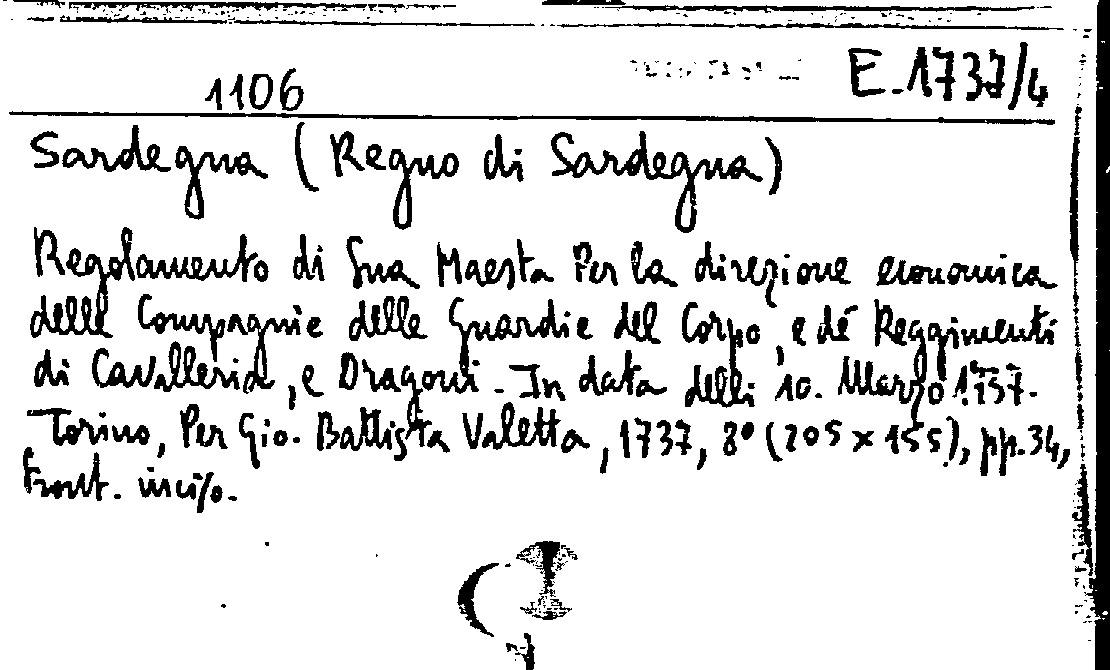 1106
E.1737/4
Sardegna (Regno di Sardegna)
Regolamento di Sua Maesta Per la direzione economica
delle Compagnie delle Guardie del Corpo, e dé Reggimenti
di Cavalleria, e Dragoni - In data delli 10. Marzo 1737.
Torino, Per Gio. Battista Valetta, 1737, 8° (205 x 155), pp. 34,
front. inciso.